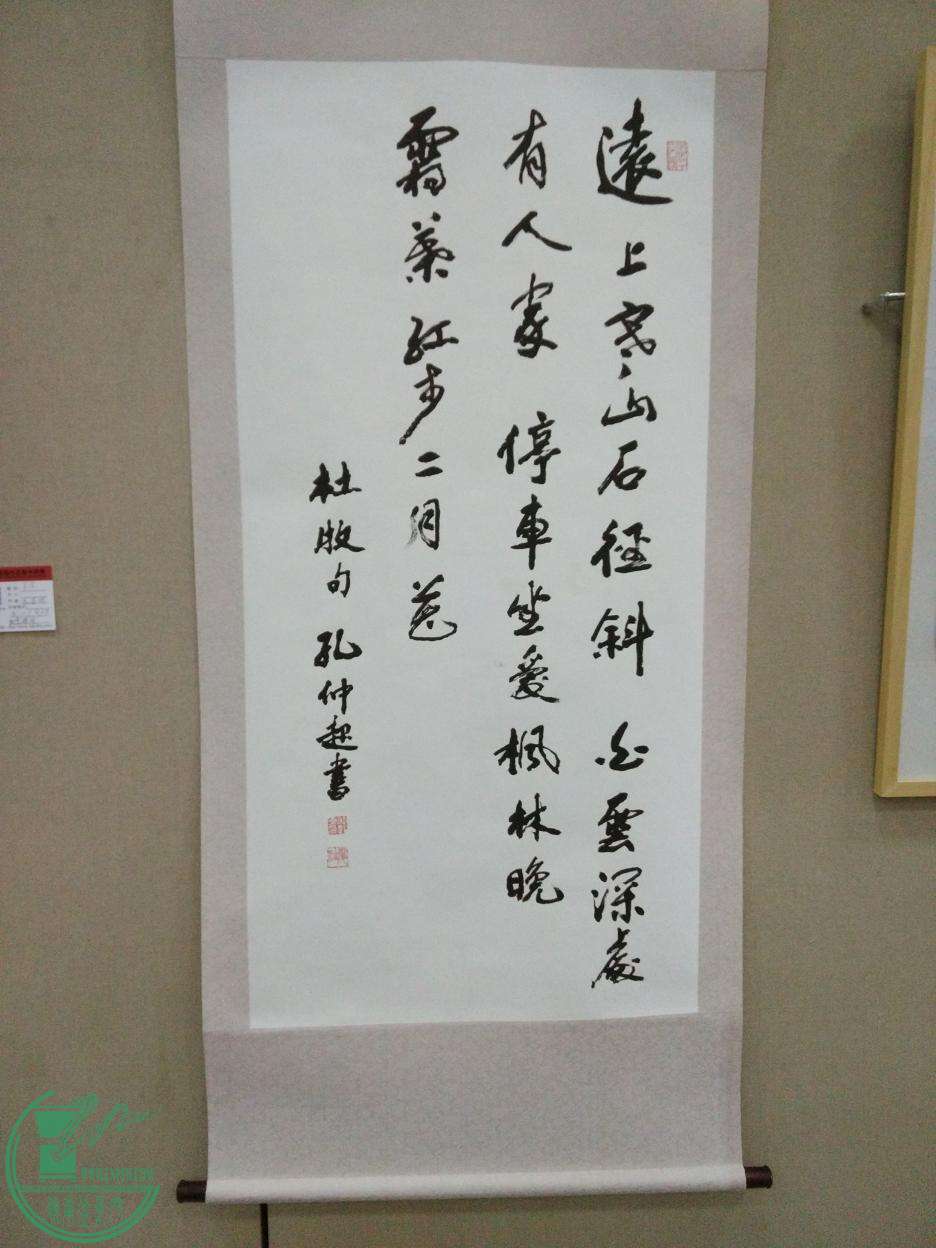 遠上寒山石徑斜 白雲深處
有人家 停車坐愛楓林晚
霜葉紅於二月花
杜牧句 孔仲起書